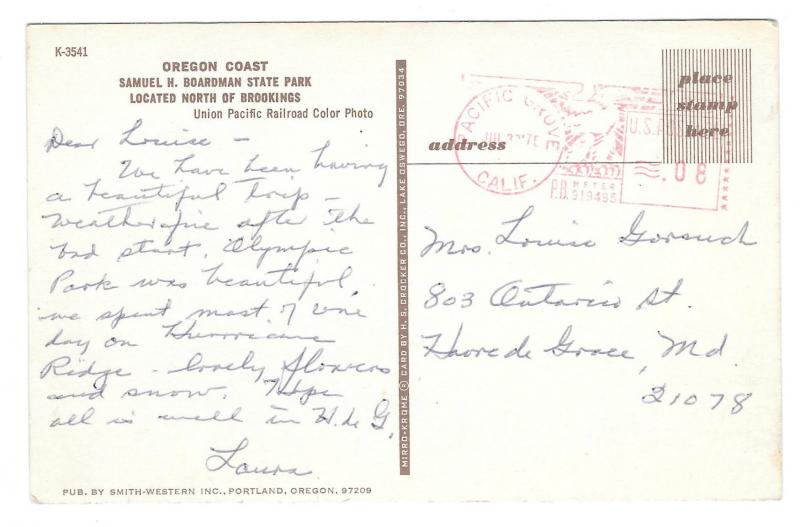 K-3541
OREGON COAST
SAMUEL H. BOARDMAN STATE PARK
LOCATED NORTH OF BROOKINGS
Union Pacific Railroad Color Photo
Dear Louise —
We have been having
a beautiful trip —
weather fine after the
bad start. Olympic
Park was beautiful.
we spent most of one
day on Hurricane
Ridge - lovely flowers
and snow. Hope
all is well in H. de G.
Laura
PUB. BY SMITH-WESTERN INC., PORTLAND, OREGON, 97209
MIRRO-KROME © CARD BY H. S. CROCKER CO., INC., LAKE OSWEGO, ORE. 97034
place
stamp
here
address
PACIFIC GROVE
CALIF.
JUL
U.S. POS
.08
P.B. METER
919495
Mrs. Louise Gorsuch
803 Ontario St.
Havre de Grace, Md
21078